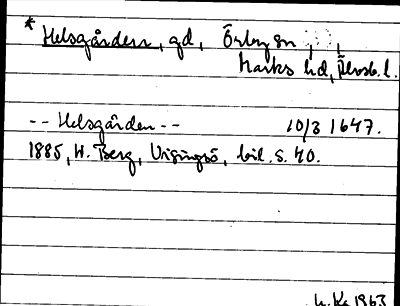 * Helsgården, gd, Örby sn,
Marks hd, Älvsb. l.
-- Helsgården -- 10/3 1647.
1885, W. Berg, Visingsö, bil. s. 40.
1963